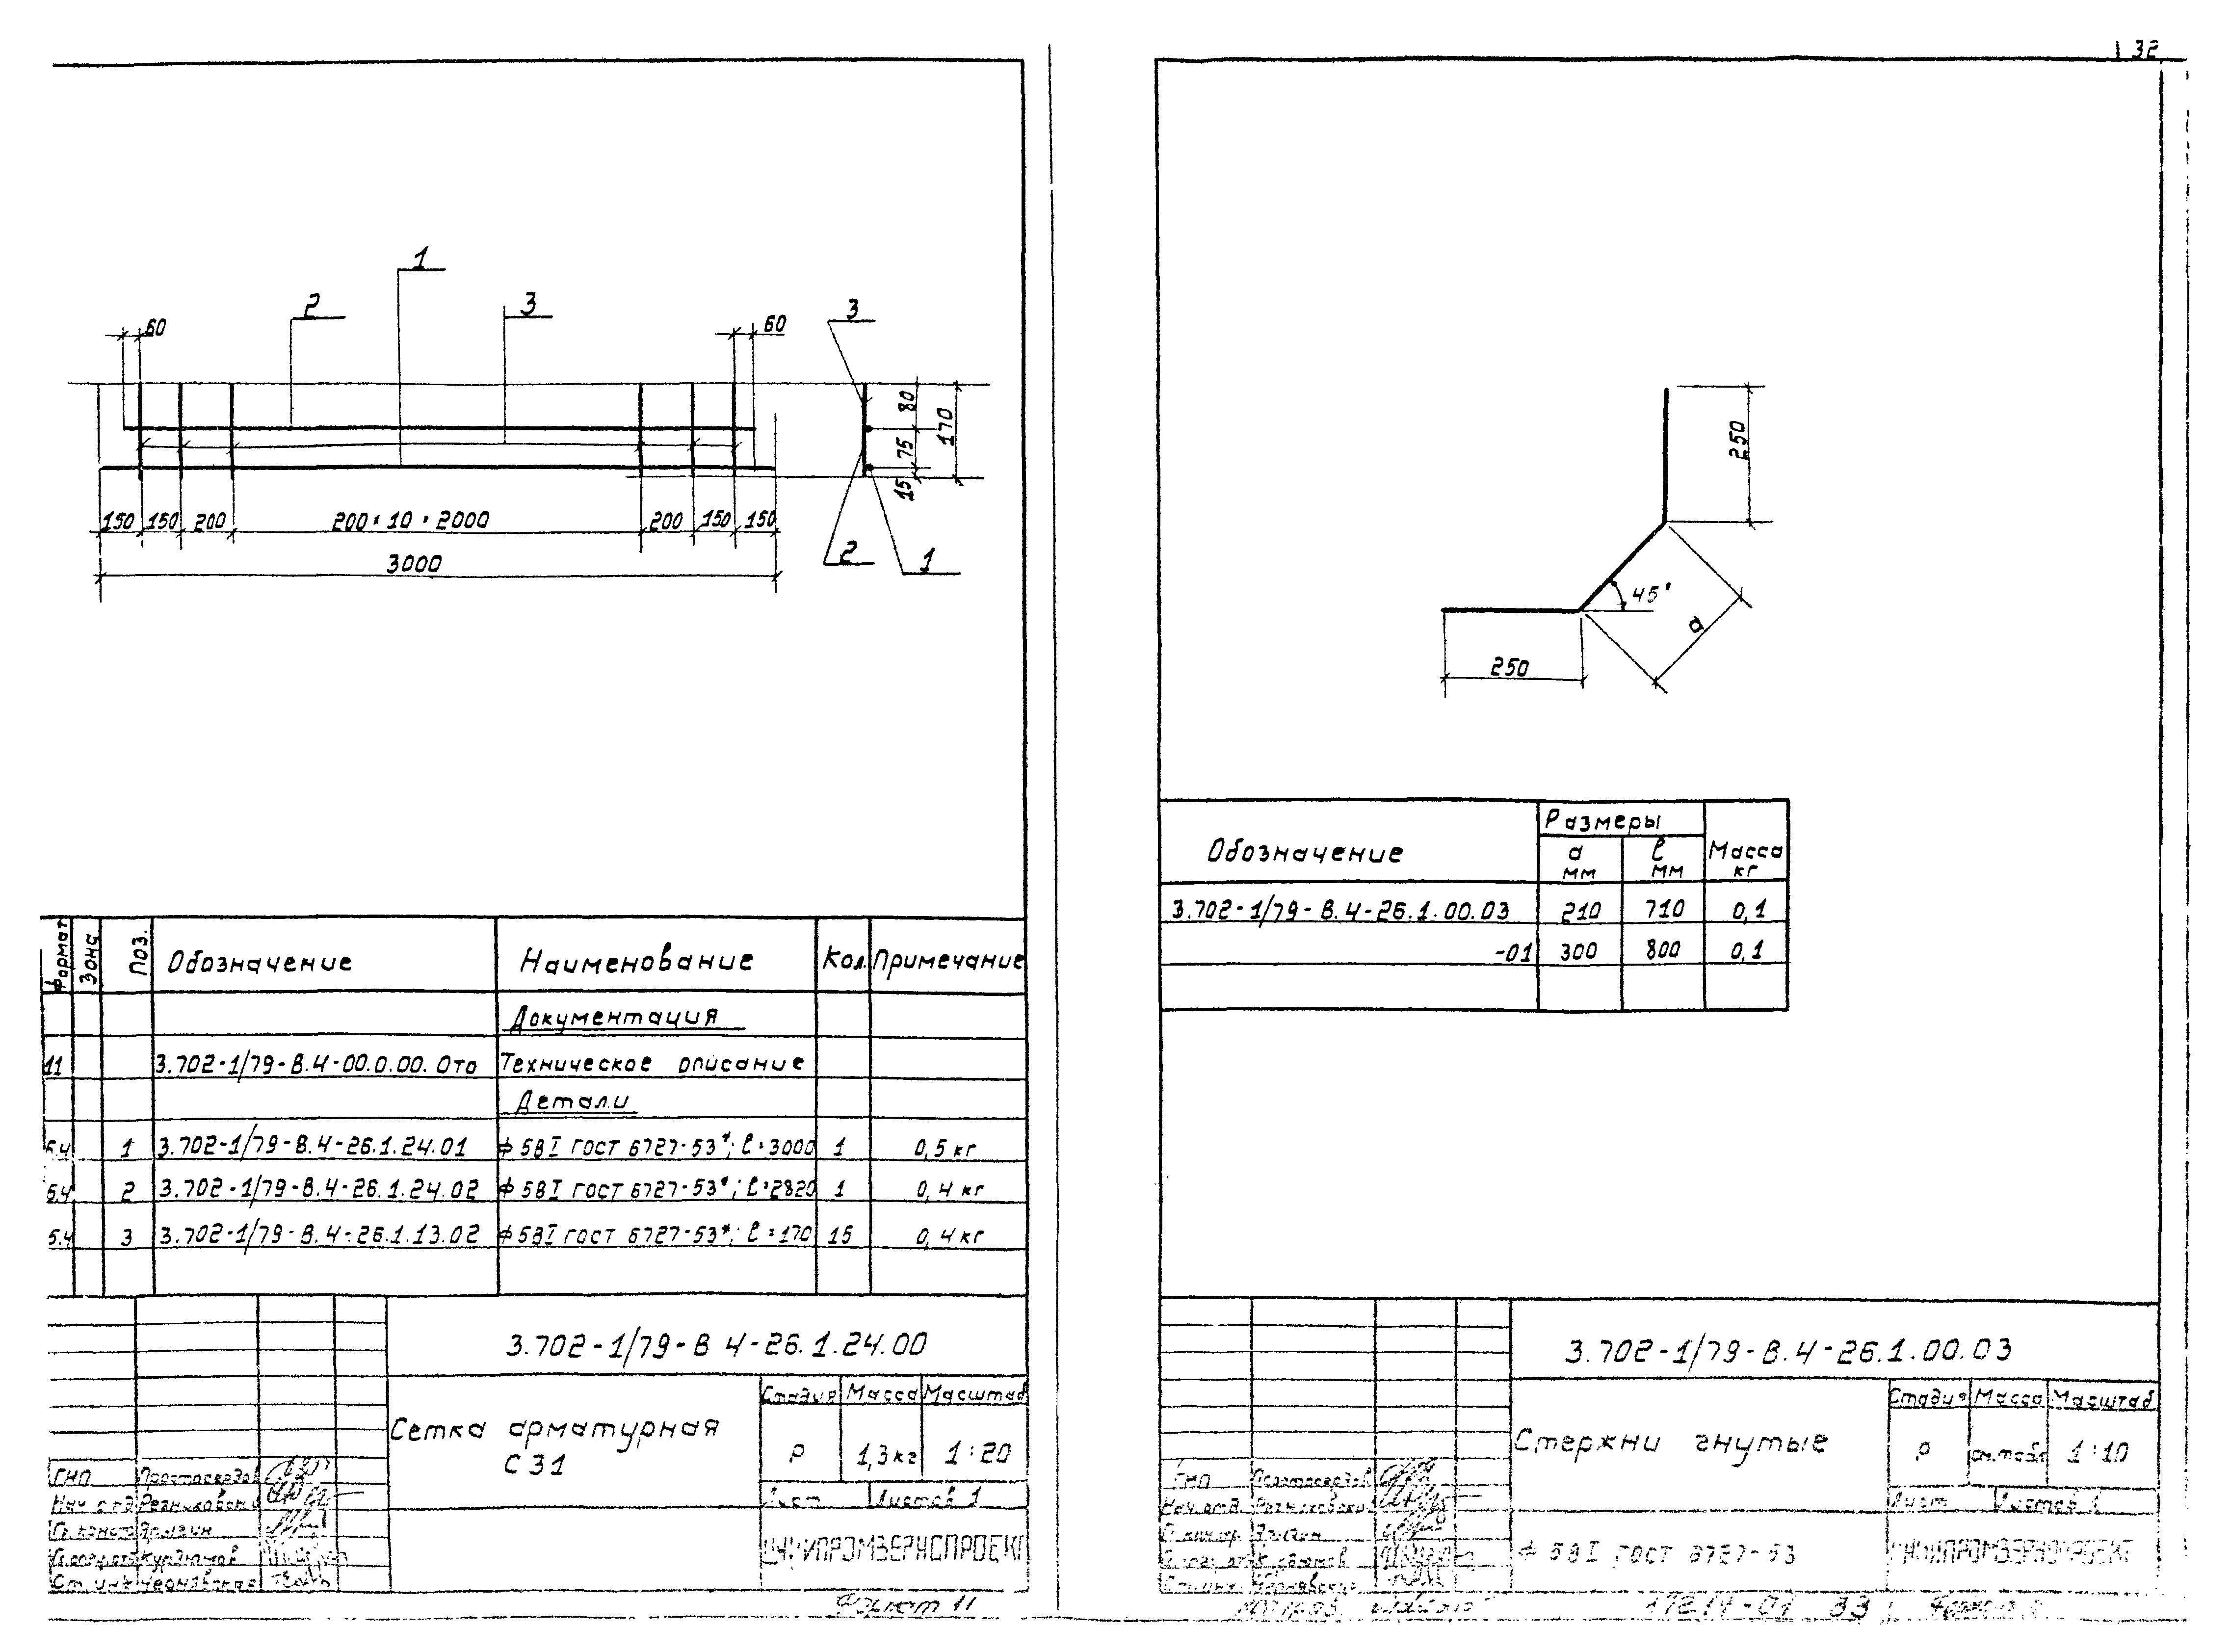 32
1
2 3 3
60 60
80
75
170
15
150 150 200 200 × 10 = 2000 200 150 150
3000
2 1
Формат Зона Поз. Обозначение Наименование Кол. Примечание
Документация
11 3.702-1/79-В.4-00.0.00.0то Техническое описание
Детали
б.ч 1 3.702-1/79-В.4-26.1.24.01 ф5ВI ГОСТ 6727-53*; ℓ=3000 1 0,5 кг
б.ч 2 3.702-1/79-В.4-26.1.24.02 ф5ВI ГОСТ 6727-53*; ℓ=2820 1 0,4 кг
б.ч 3 3.702-1/79-В.4-26.1.13.02 ф5ВI ГОСТ 6727-53*; ℓ=170 15 0,4 кг
3.702-1/79-В 4-26.1.24.00
Сетка арматурная
С31
Стадия Масса Масштаб
Р 1,3 кг 1:20
Лист Листов 1
ЦНИИПРОМЗЕРНОПРОЕКТ
ГИП
Нач. отд. Резниковский
Гл. констр
Курдюмов
Ст. инж. Чернявская
Формат 11
250
45°
а
250
Обозначение Размеры Масса кг
а мм ℓ мм
3.702-1/79-В.4-26.1.00.03 210 710 0,1
-01 300 800 0,1
3.702-1/79-В.4-26.1.00.03
Стержни гнутые
Стадия Масса Масштаб
Р см.табл 1:10
Лист Листов 1
ф 5ВI ГОСТ 6727-53
ЦНИИПРОМЗЕРНОПРОЕКТ
ГИП
Нач. отд. Резниковский
Курдюмов
Ст. инж. Чернявская
17214-01 33